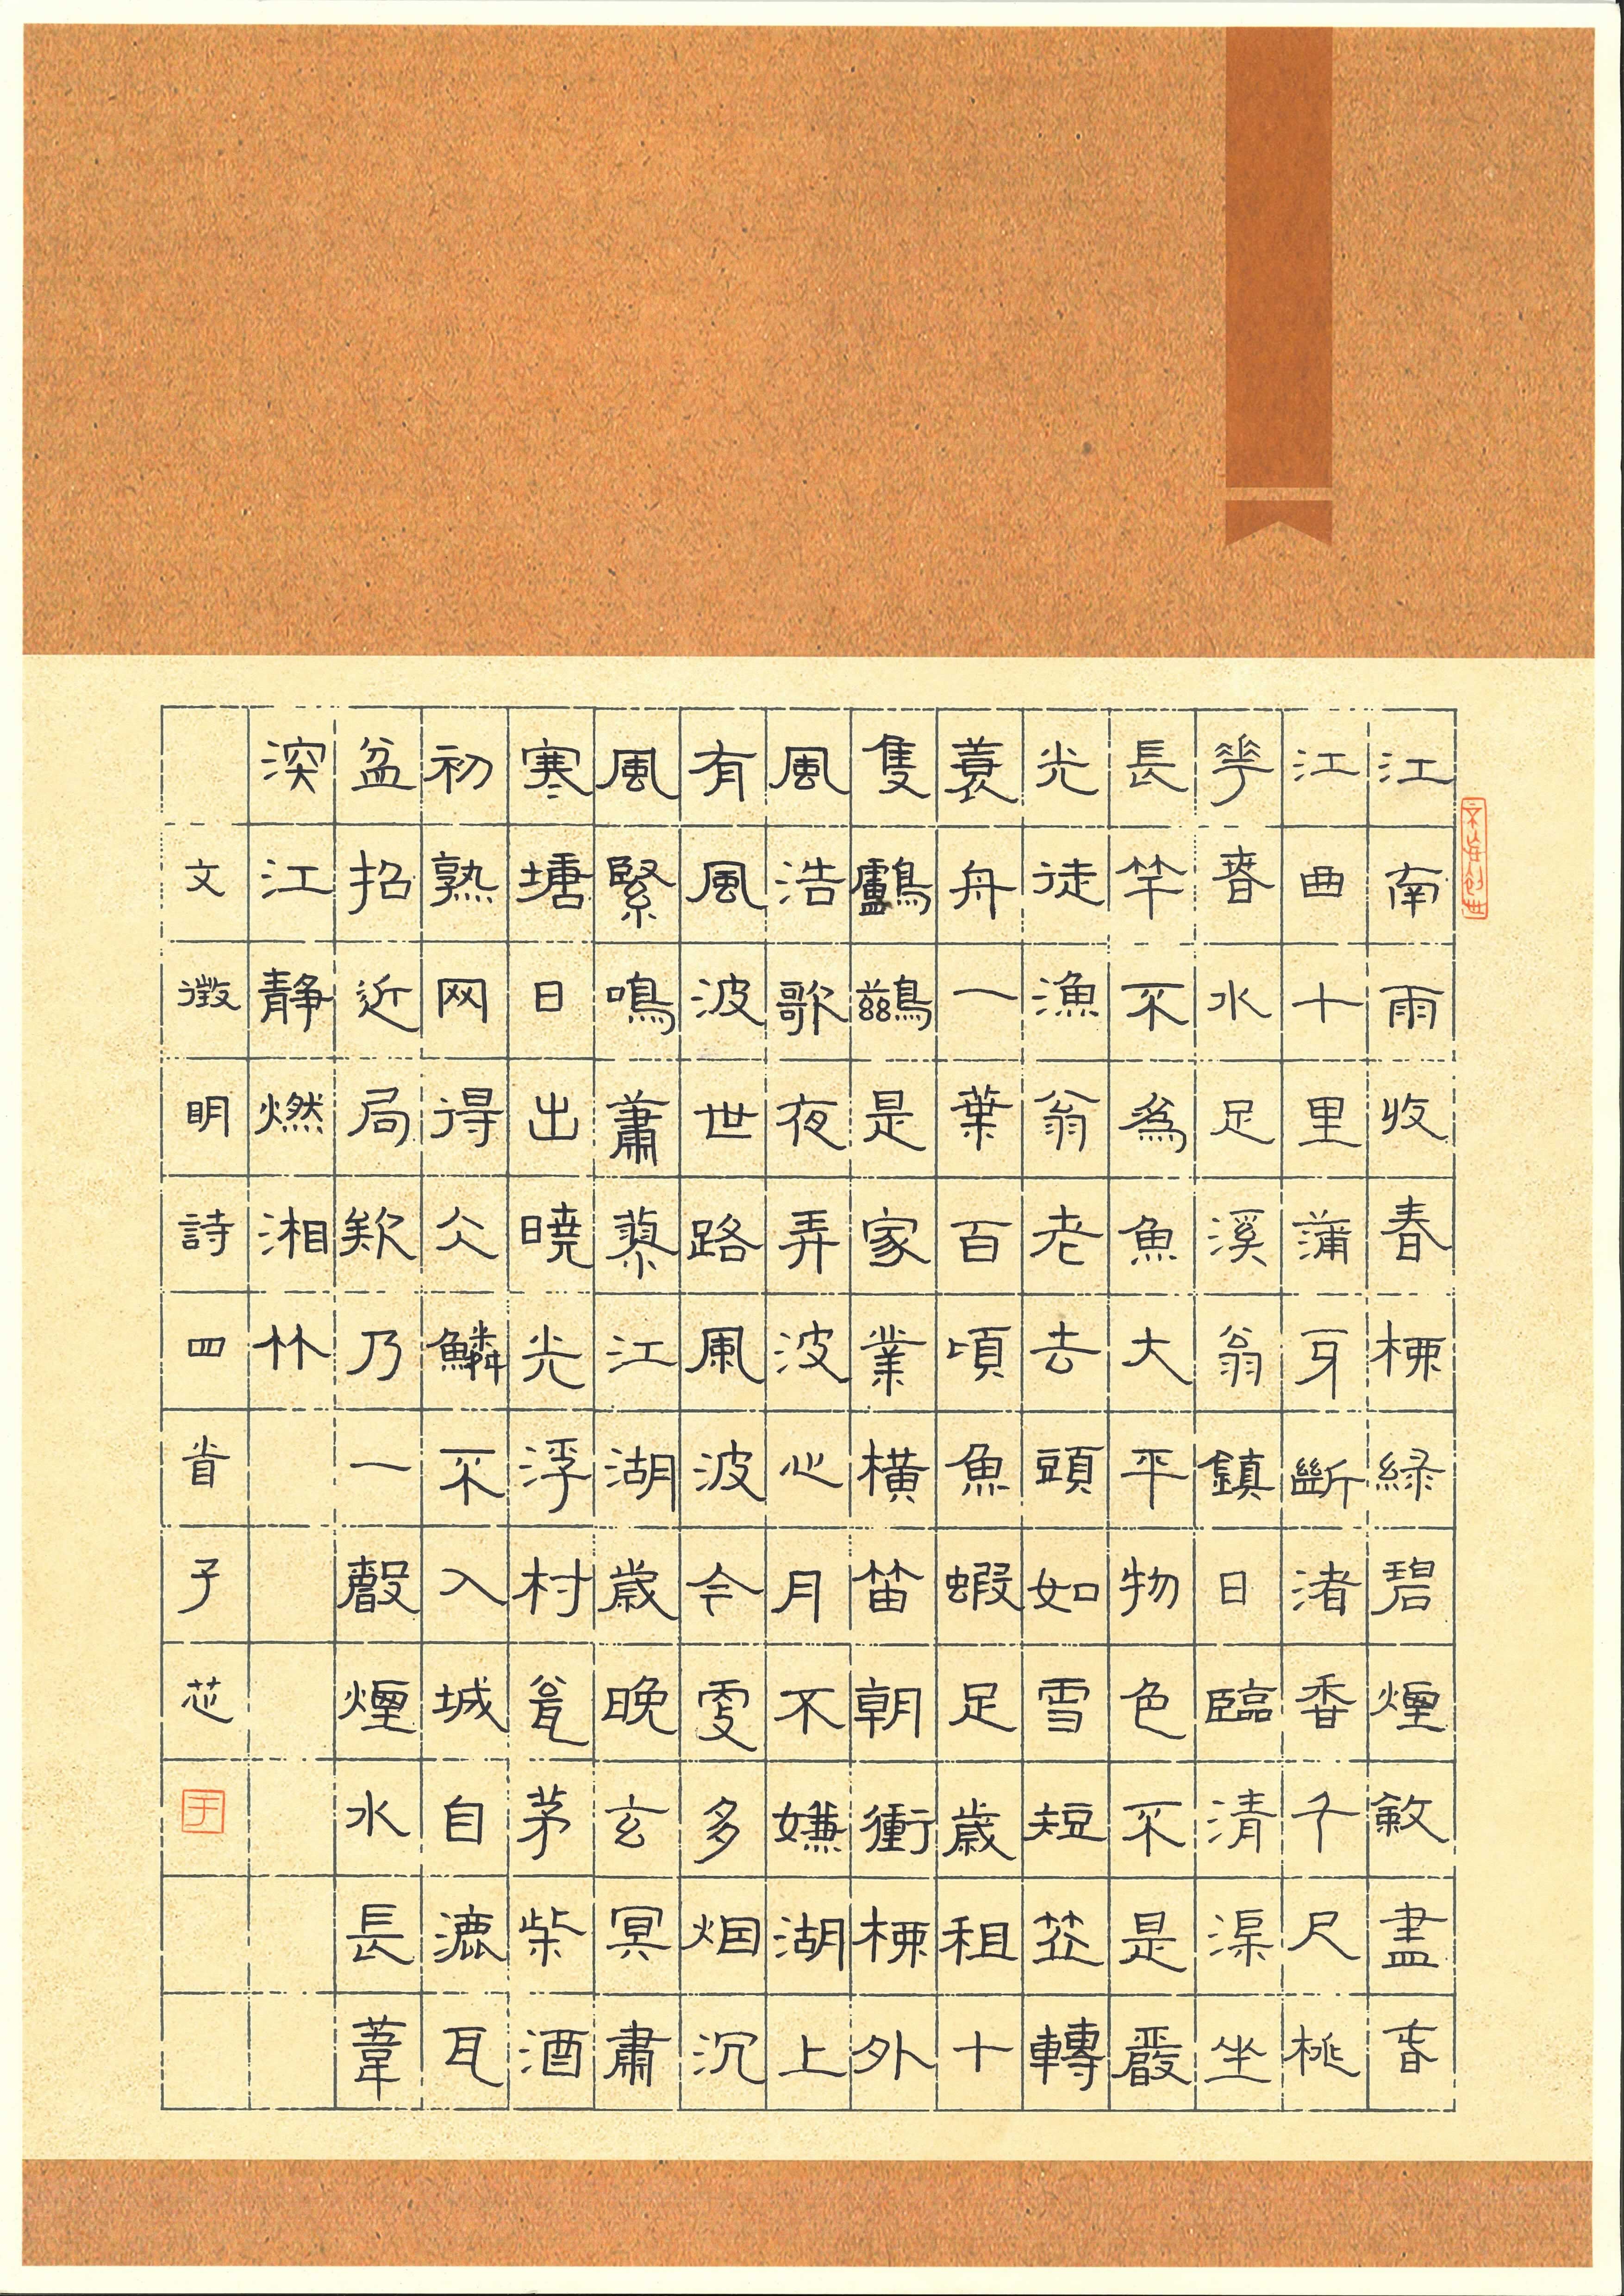 江南雨收春桺綠碧煙斂盡春
江曲十里蒲牙斷渚香千尺桃
華春水足溪翁鎮日臨清渠坐
長竿不為魚大平物色不是嚴
光徒漁翁老去頭如雪短笠轉
蓑舟一葉百頃魚蝦足歲租十
隻鸕鷀是家業橫笛朝衝桺外
風浩歌夜弄波心月不嫌湖上
有風波世路風波今處多烟沉
風緊鳴蕭蓼江湖歲晚玄冥肅
寒塘日出曉光浮村瓮茅柴酒
初熟网得仌鱗不入城自漉瓦
盆招近局欸乃一聲煙水長葦
深江靜燃湘竹
文徵明詩四首子芯